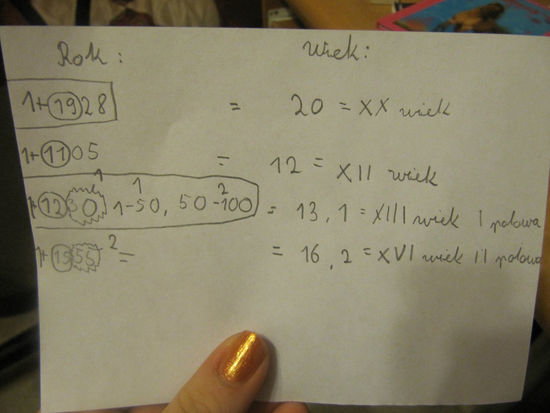 Rok: Wiek:
1+1928 = 20 = XX wiek
1+1105 = 12 = XII wiek
1+1230 1 1-50, 1 50-100 2 = 13, 1 = XIII wiek I połowa
1+1555 2 = = 16, 2 = XVI wiek II połowa